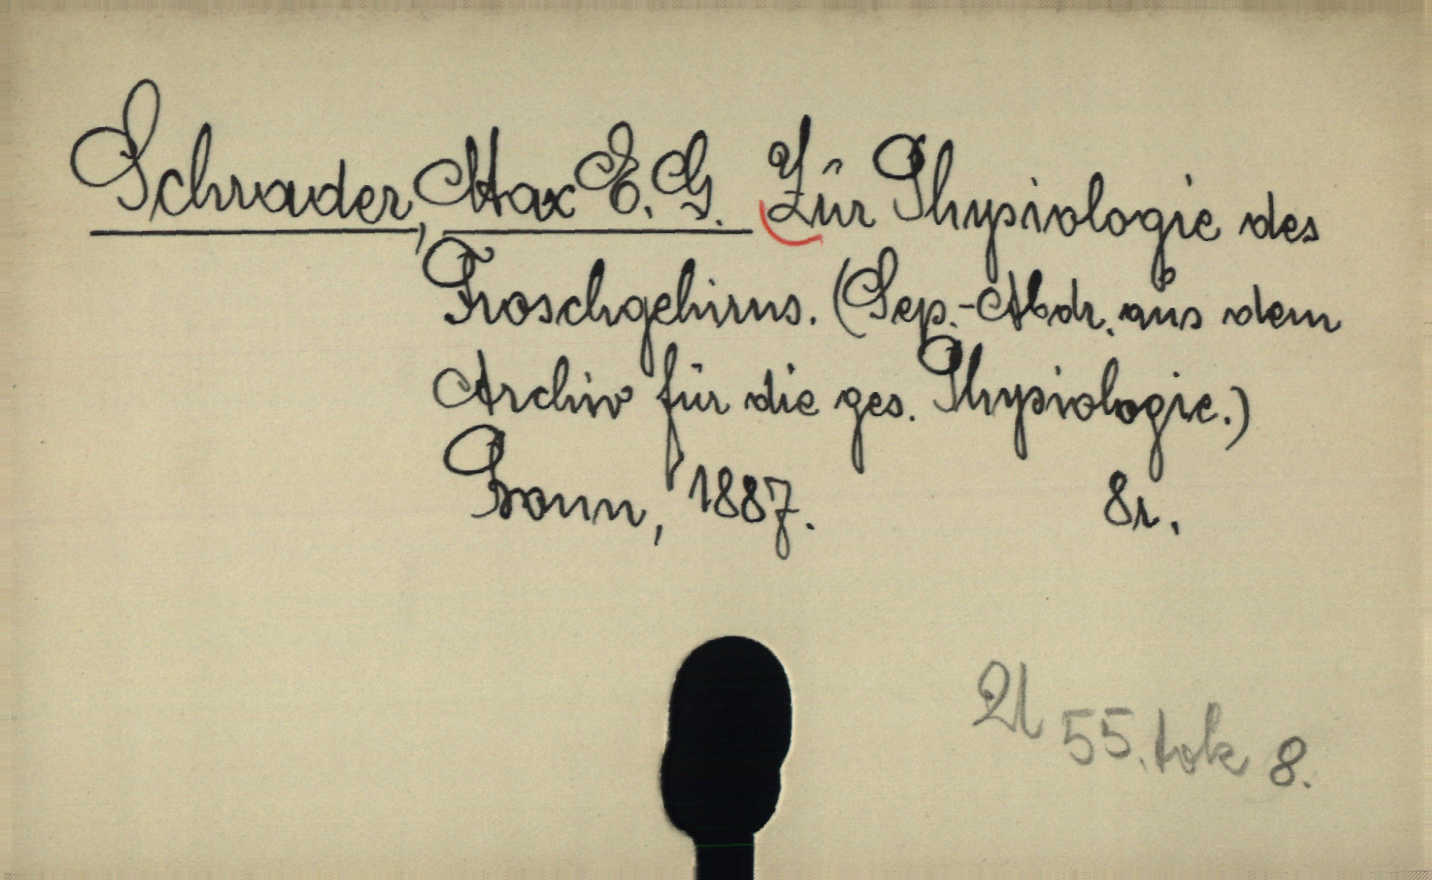 Schrader, Max E. G. Zur Physiologie des
Froschgehirns. (Sep.-Abdr. aus dem
Archiv für die ges. Physiologie.)
Bonn, 1887. 8r.
55. tok 8.